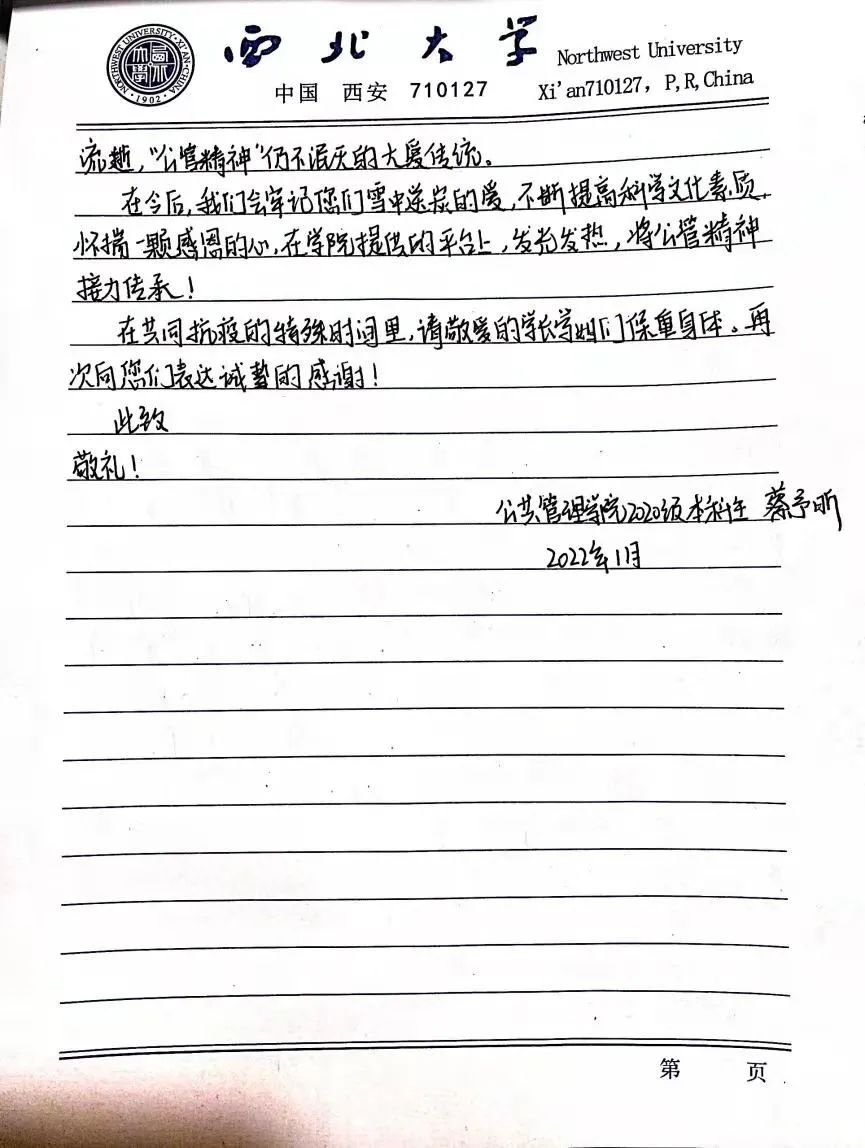 西北大学
Northwest University
中国 西安 710127
Xi'an710127, P,R,China
NORTHWEST UNIVERSITY·XI'AN·CHINA
·1902·
流逝,“公管精神”仍不泯灭的大爱传统。
在今后,我们会牢记您们雪中送炭的爱,不断提高科学文化素质,
怀揣一颗感恩的心,在学院提供的平台上,发光发热,将公管精神
接力传承!
在共同抗疫的特殊时间里,请敬爱的学长学姐们保重身体。再
次向您们表达诚挚的感谢!
此致
敬礼!
公共管理学院2020级本科生 蔡予昕
2022年1月
第 页